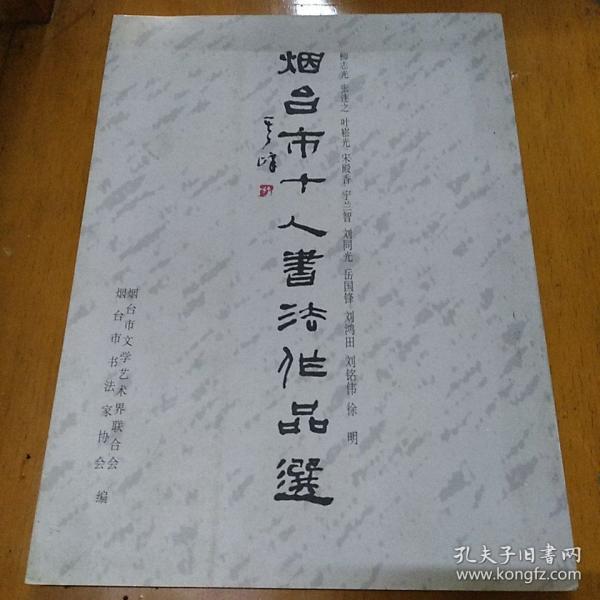 柳志光 张连之 叶崧光 宋殿香 宇兰智 刘同光 岳国锋 刘鸿田 刘铭伟 徐明
烟台市十人書法作品選
烟台市文学艺术界联合会
烟台市书法家协会 编
孔夫子旧书网
www.kongfz.com